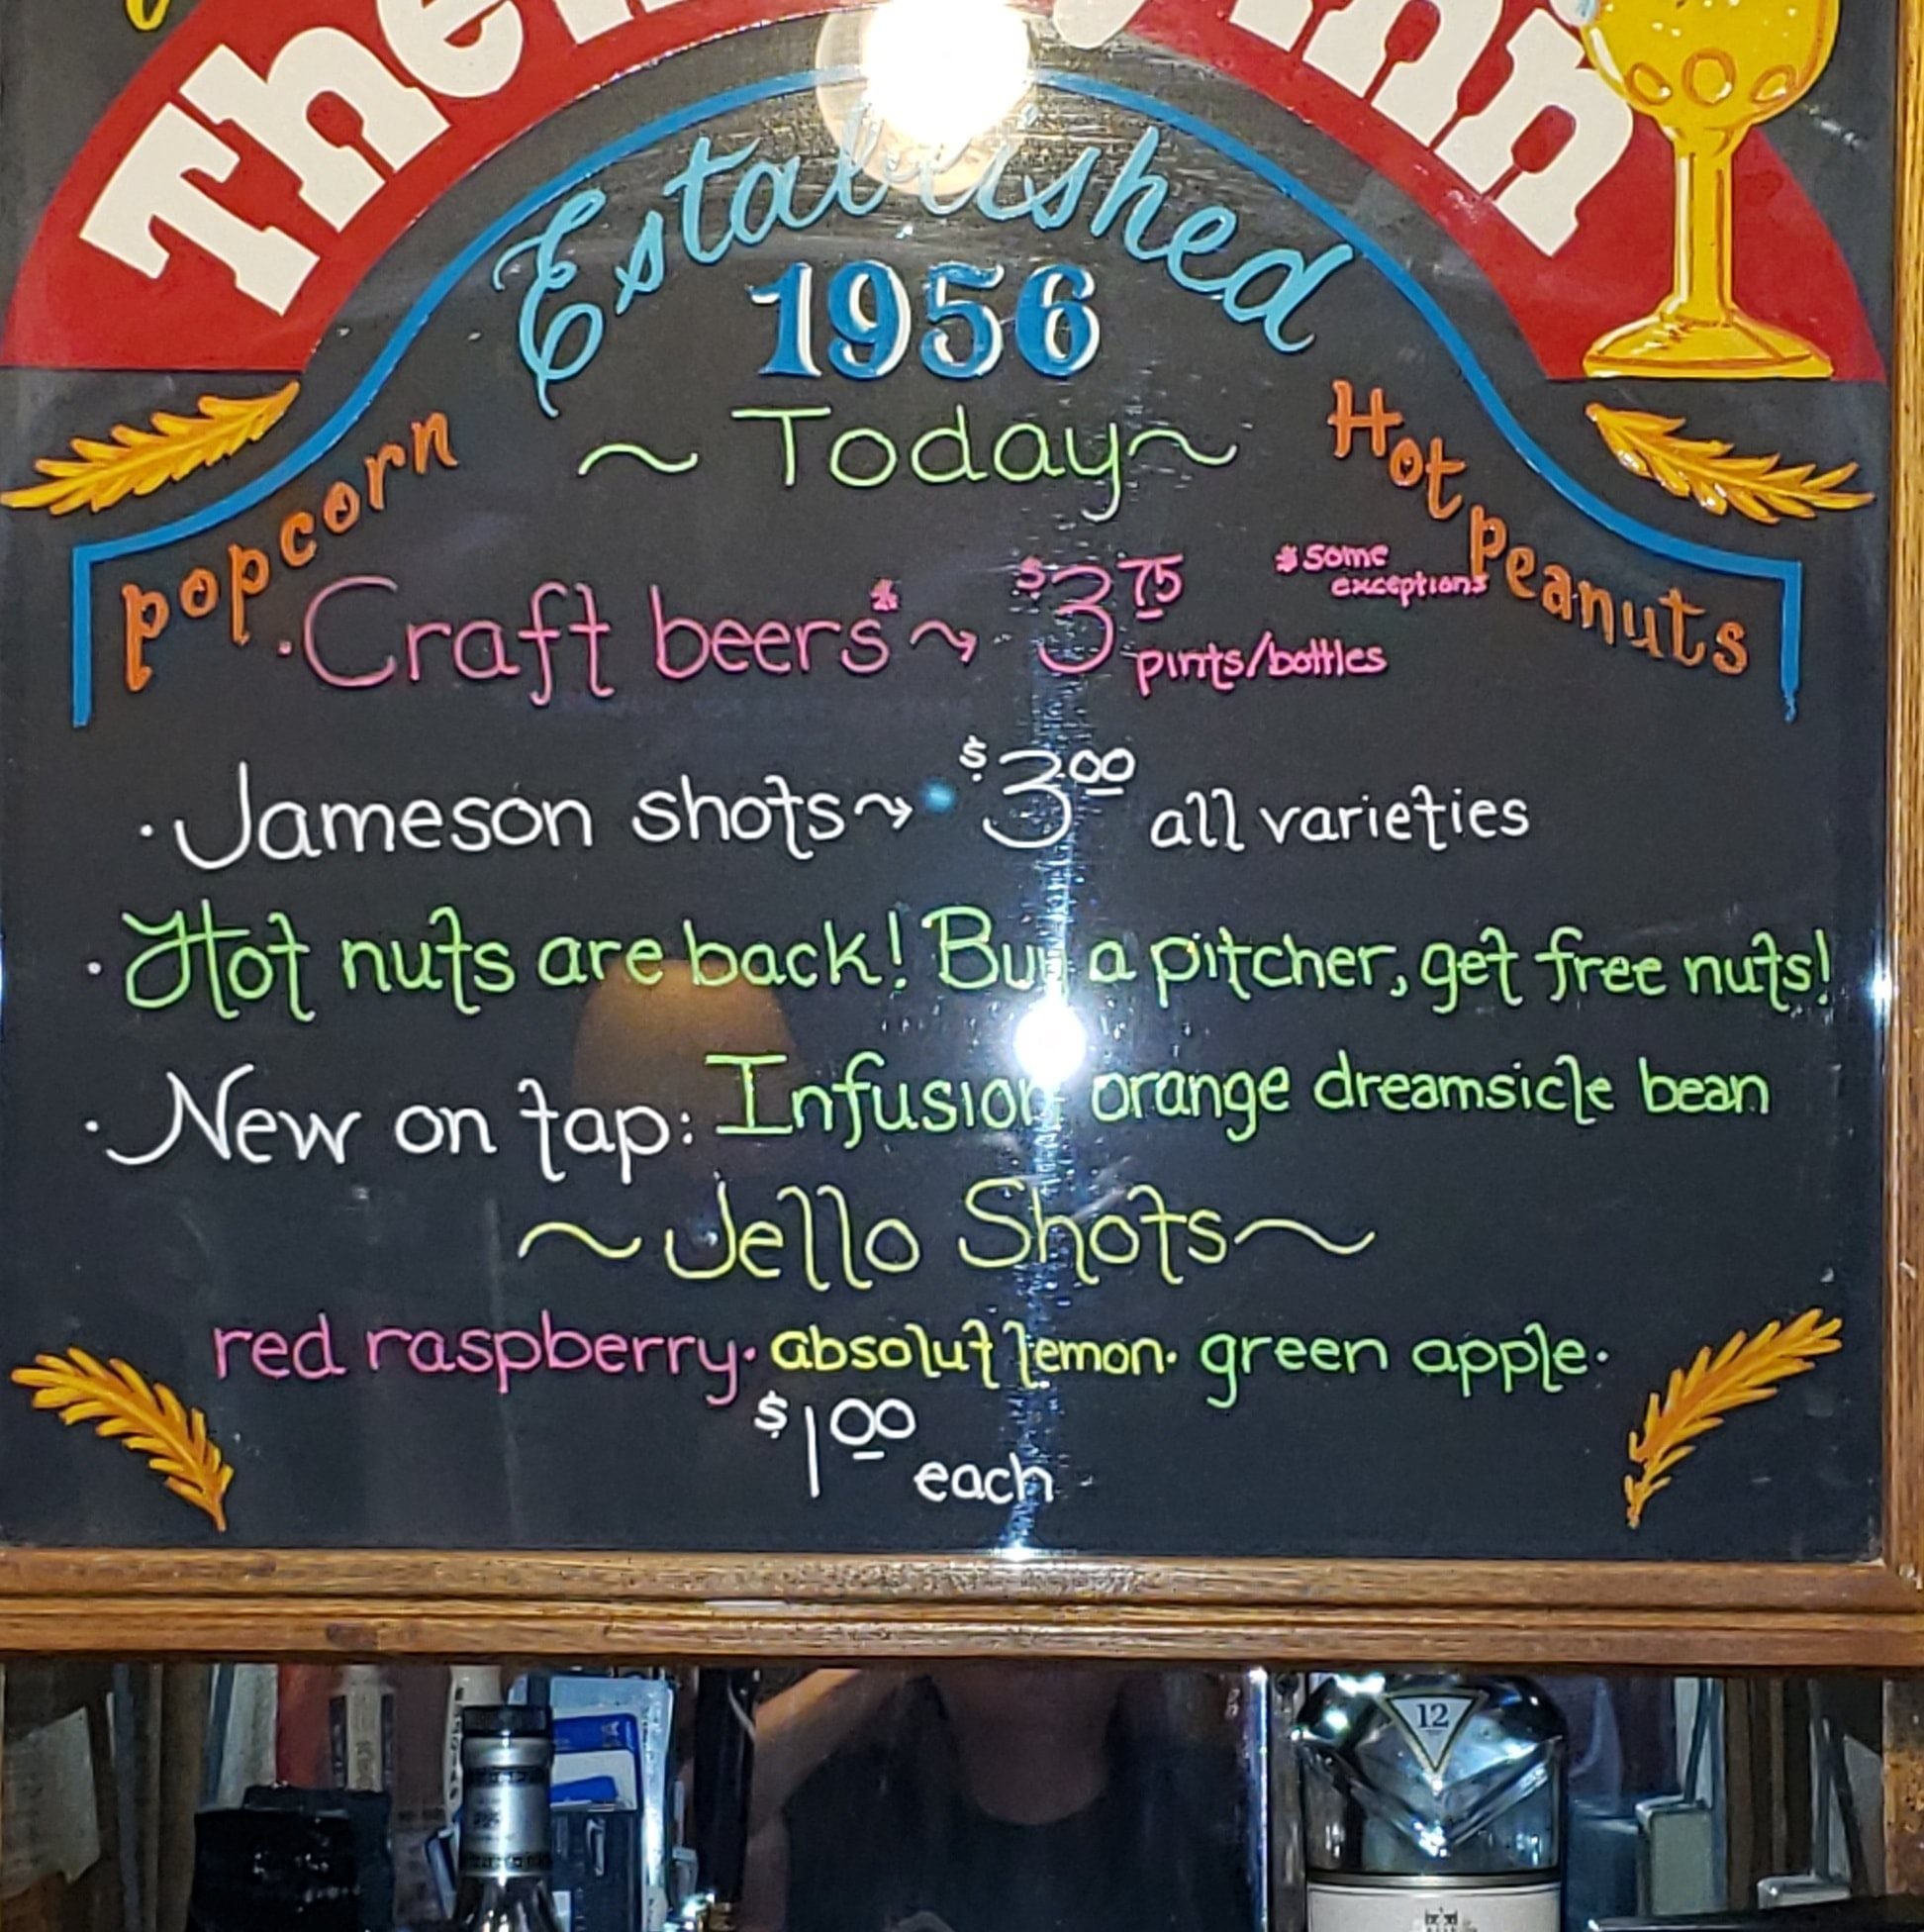 The Inn
Established
1956
~ Today ~
popcorn
Hot Peanuts
· Craft beers* ⤳ $3 75 pints/bottles
* some
exceptions
· Jameson shots ⤳ $3 00 all varieties
· Hot nuts are back! Buy a pitcher, get free nuts!
· New on tap: Infusion orange dreamsicle bean
~ Jello Shots ~
red raspberry · absolut lemon · green apple ·
$1 00 each
12